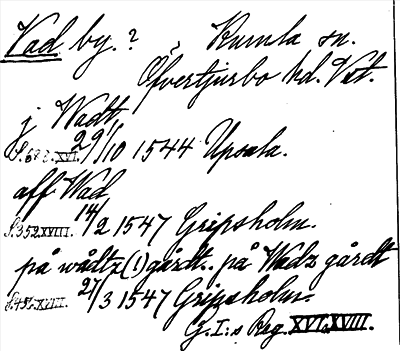 Vad by. ? i Kumla sn.
Öfvertjurbo hd. Vst.
j Wadt,
S. 682. XVI. 29/10 1544 Upsala.
aff Wad
S. 352. XVIII. 14/2 1547 Gripsholm.
på wåltz (!) gårdt. på Wadz gårdt
S. 451. XVIII. 21/3 1547 Gripsholm.
G. I:s Reg. XVI, XVIII.